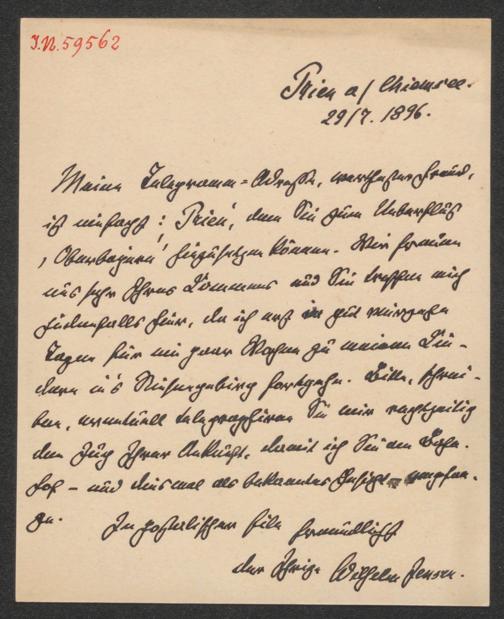 J.N. 59562
Prien a/ Chiemsee.
29/7. 1896.
Meine Telegramm-Adresse, werthester Freund,
ist einfach: 'Prien', dem Sie zum Ueberfluß
'Oberbayern' hinzusetzen können. Wir freuen
uns sehr Ihres Kommens und Sie treffen mich
jedenfalls hier, da ich erst in gut vierzehn
Tagen für ein paar Wochen zu meinen Kin-
dern in's Riesengebirg fortgehe. Bitte, schrei-
ben, eventuell telegraphiren Sie mir rechtzeitig
den Zug Ihrer Ankunft, damit ich Sie am Bahn-
hof – und diesmal als bekanntes Gesicht – empfan-
ge. In postalischer Eile freundlichst
der Ihrige Wilhelm Jensen.